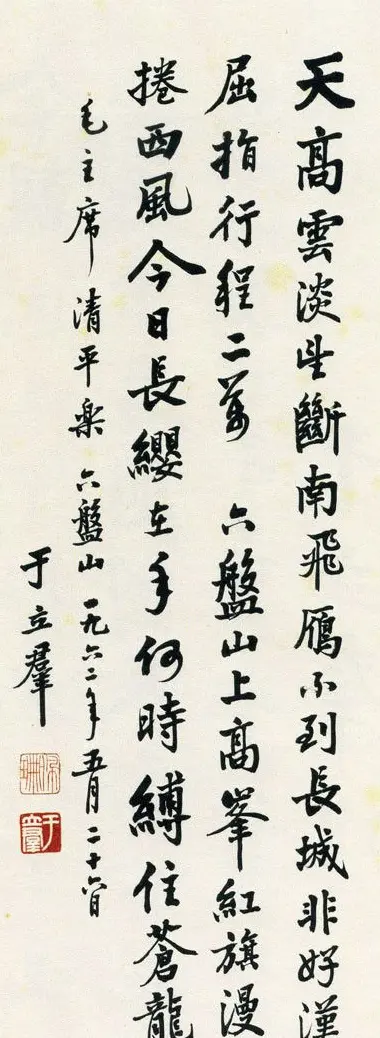 天高雲淡望斷南飛雁不到長城非好漢
屈指行程二萬 六盤山上高峯紅旗漫
捲西風今日長纓在手何時縛住蒼龍
毛主席清平樂六盤山一九六二年五月二十六日
于立羣
于立羣